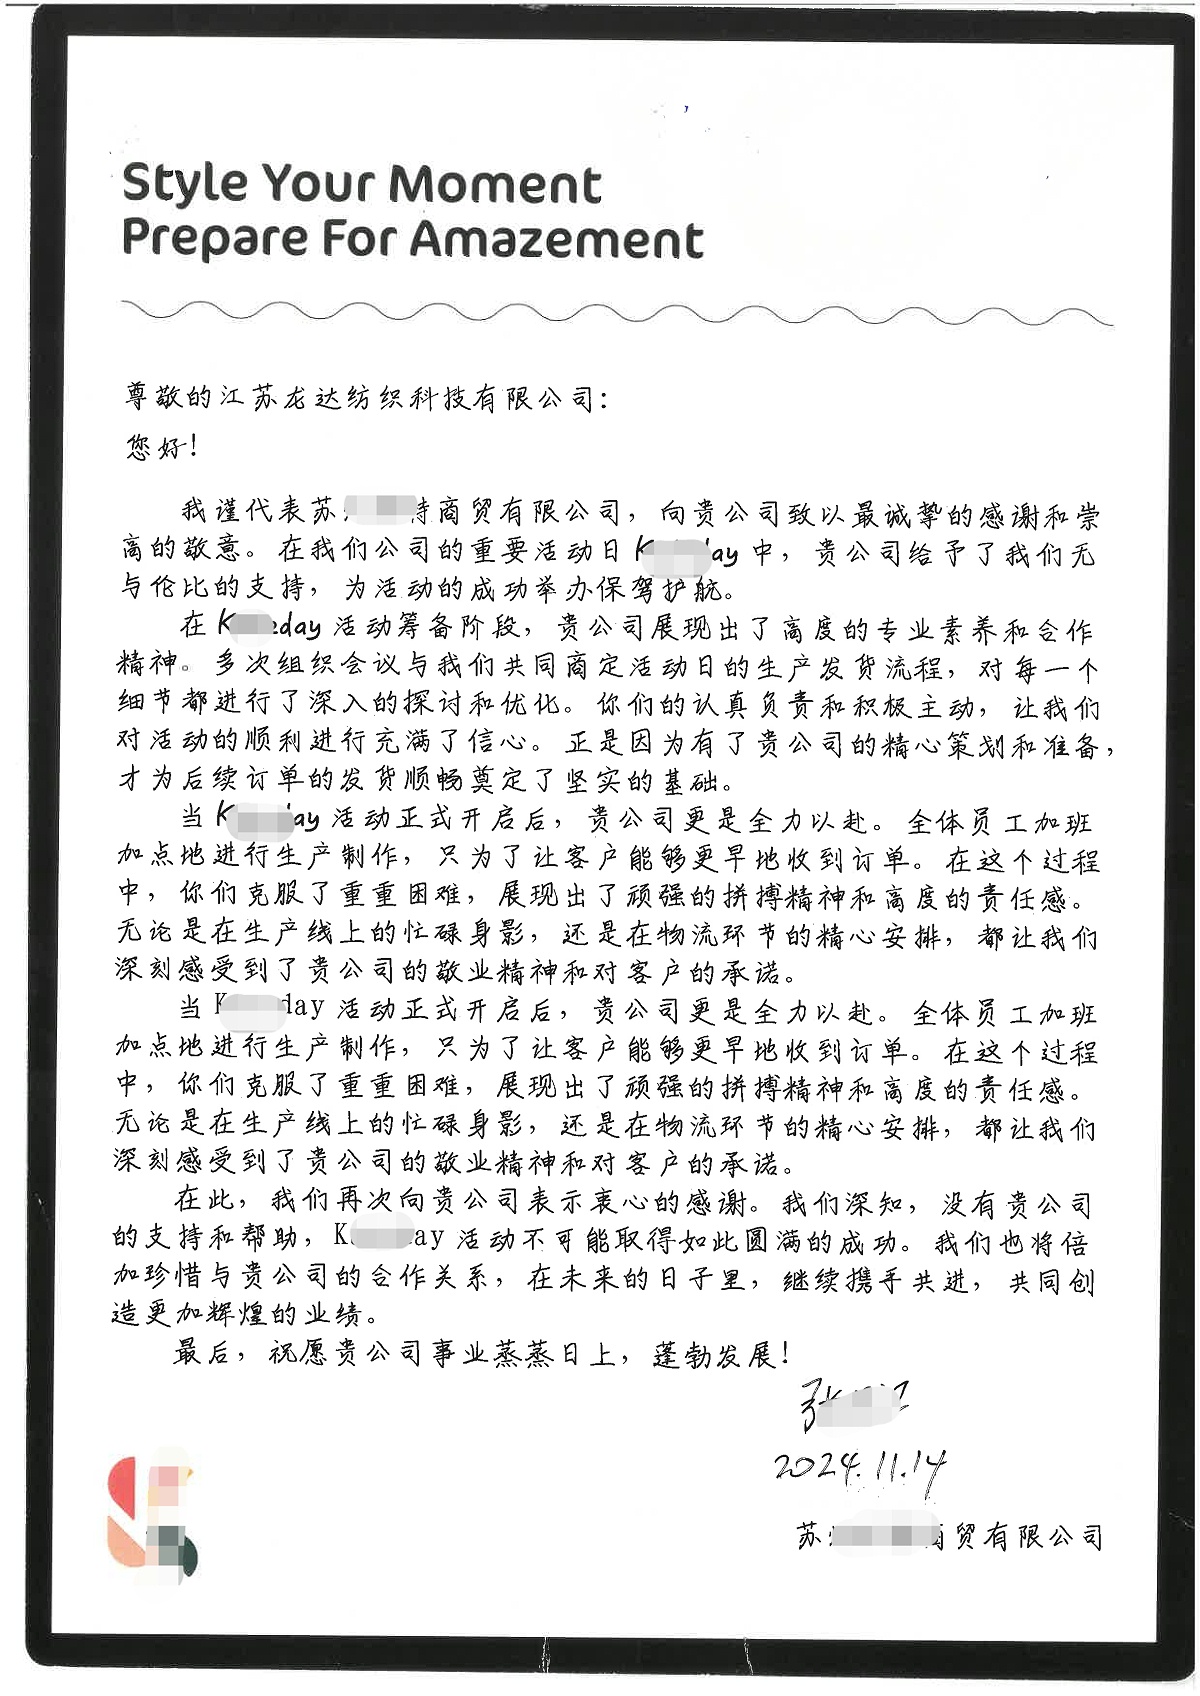 Style Your Moment
Prepare For Amazement
尊敬的江苏龙达纺织科技有限公司：
您好！
我谨代表苏 商贸有限公司，向贵公司致以最诚挚的感谢和崇
高的敬意。在我们公司的重要活动日K day中，贵公司给予了我们无
与伦比的支持，为活动的成功举办保驾护航。
在K day活动筹备阶段，贵公司展现出了高度的专业素养和合作
精神。多次组织会议与我们共同商定活动日的生产发货流程，对每一个
细节都进行了深入的探讨和优化。你们的认真负责和积极主动，让我们
对活动的顺利进行充满了信心。正是因为有了贵公司的精心策划和准备，
才为后续订单的发货顺畅奠定了坚实的基础。
当K ay活动正式开启后，贵公司更是全力以赴。全体员工加班
加点地进行生产制作，只为了让客户能够更早地收到订单。在这个过程
中，你们克服了重重困难，展现出了顽强的拼搏精神和高度的责任感。
无论是在生产线上的忙碌身影，还是在物流环节的精心安排，都让我们
深刻感受到了贵公司的敬业精神和对客户的承诺。
当K day活动正式开启后，贵公司更是全力以赴。全体员工加班
加点地进行生产制作，只为了让客户能够更早地收到订单。在这个过程
中，你们克服了重重困难，展现出了顽强的拼搏精神和高度的责任感。
无论是在生产线上的忙碌身影，还是在物流环节的精心安排，都让我们
深刻感受到了贵公司的敬业精神和对客户的承诺。
在此，我们再次向贵公司表示衷心的感谢。我们深知，没有贵公司
的支持和帮助，K ay活动不可能取得如此圆满的成功。我们也将倍
加珍惜与贵公司的合作关系，在未来的日子里，继续携手共进，共同创
造更加辉煌的业绩。
最后，祝愿贵公司事业蒸蒸日上，蓬勃发展！
张 江
2024.11.14
苏 商贸有限公司